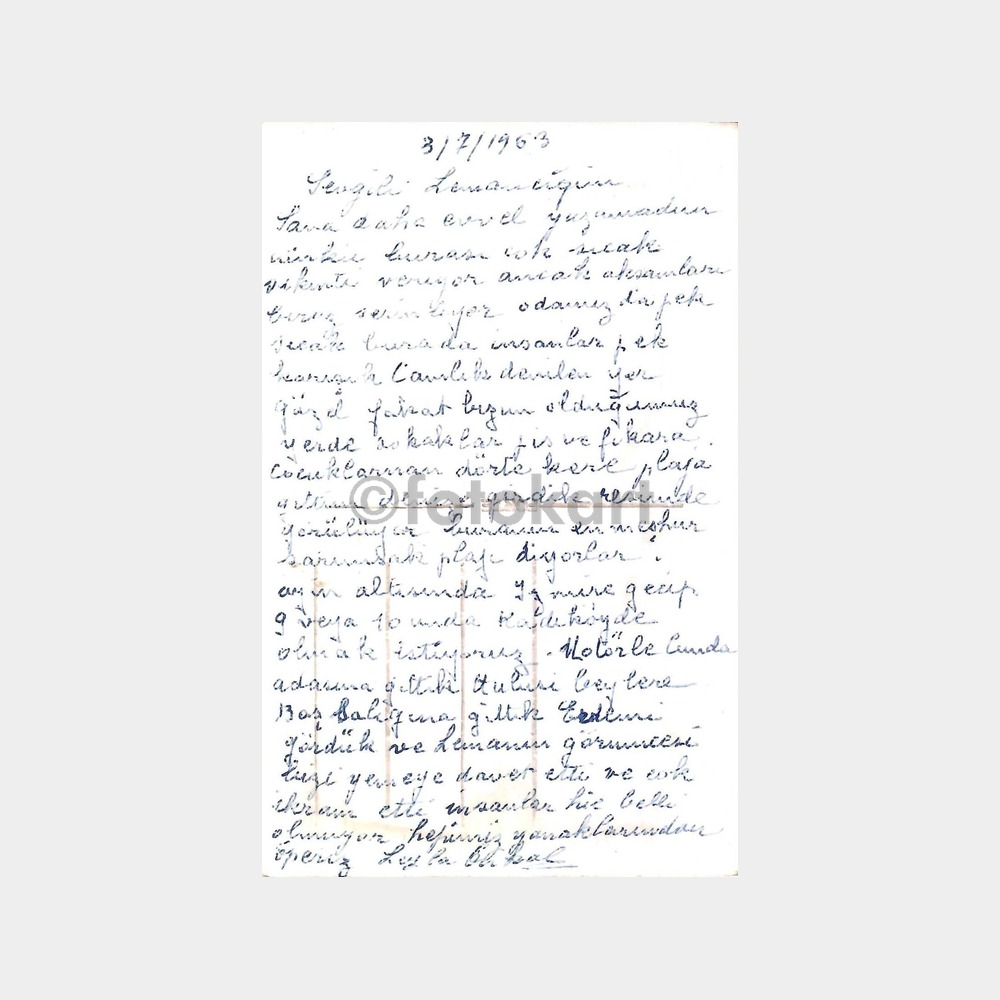 3/7/1963
Sevgili Lemancığım
Sana daha evvel yazamadım
çünkü burası çok sıcak
sıkıntı veriyor ancak akşamları
biraz serinliyor odamız da pek
sıcak burada insanlar pek
karışık Çamlık denilen yer
güzel fakat bizim olduğumuz
yerde sokaklar pis ve fıkara.
çocuklarnan dörte kere plaja
gittim denize girdik resimde
©fotokart
görülüyor buranın en meşhur
sarımsak plajı diyorlar
ayın altısında İzmire geçip
9 veya 10 unda Kadıköyde
olmak istiyoruz. Motörle Cunda
adasına gittik Hulusi beylere
balığına gittik Erdemi
gördük ve Lemanın görümcesi
bizi yemeye davet etti ve çok
ikram etti insanlar hiç belli
olmuyor hepimiz yanaklarından
öperiz Leyla